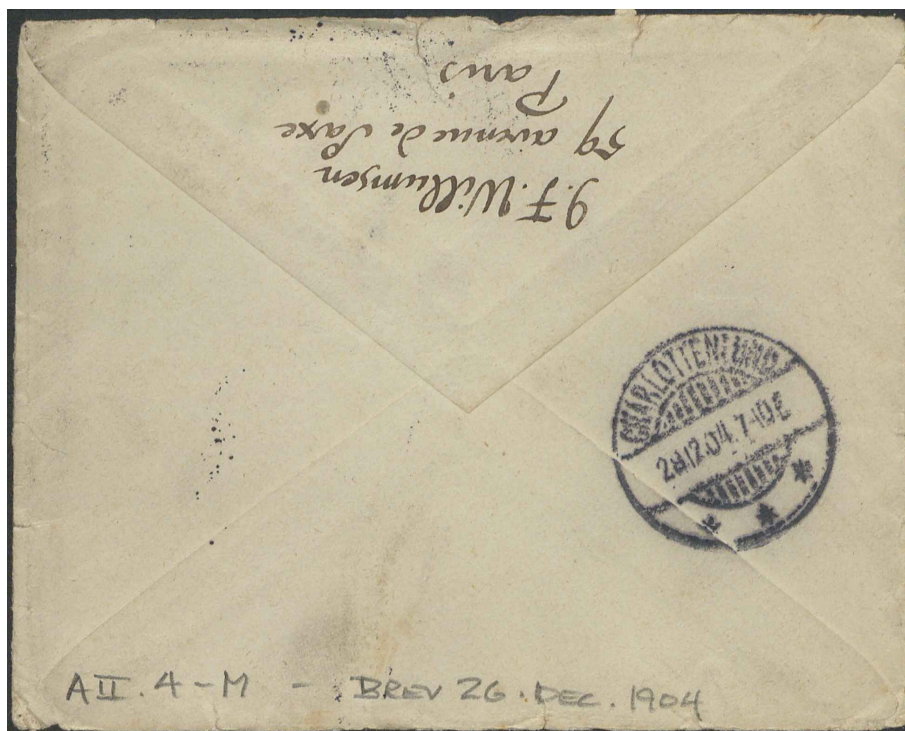 J. F. Willumsen
59 avenue de Saxe
Paris
CHARLOTTENLUND
28.12.04. 7-10 E
A II. 4 - M - BREV 26. DEC. 1904